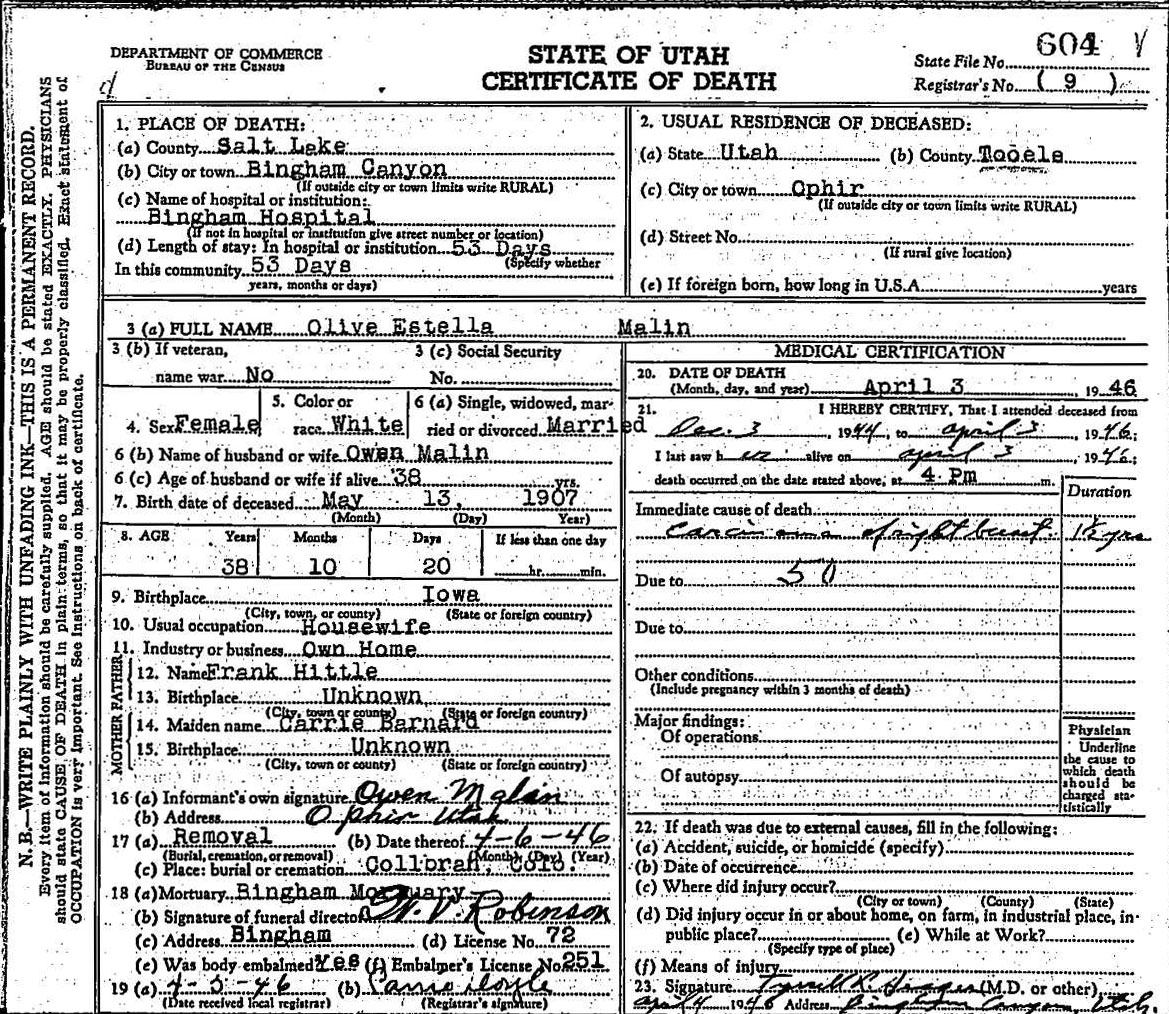 DEPARTMENT OF COMMERCE
BUREAU OF THE CENSUS
STATE OF UTAH
CERTIFICATE OF DEATH
State File No. 604
Registrar's No. ( 9 )
N.B.—WRITE PLAINLY WITH UNFADING INK—THIS IS A PERMANENT RECORD.
Every item of information should be carefully supplied. AGE should be stated EXACTLY. PHYSICIANS
should state CAUSE OF DEATH in plain terms, so that it may be properly classified. Exact statement of
OCCUPATION is very important. See Instructions on back of certificate.
1. PLACE OF DEATH:
(a) County Salt Lake
(b) City or town Bingham Canyon
(If outside city or town limits write RURAL)
(c) Name of hospital or institution:
Bingham Hospital
(If not in hospital or institution give street number or location)
(d) Length of stay: In hospital or institution 53 Days
(Specify whether
In this community 53 Days
years, months or days)
2. USUAL RESIDENCE OF DECEASED:
(a) State Utah (b) County Tooele
(c) City or town Ophir
(If outside city or town limits write RURAL)
(d) Street No.
(If rural give location)
(e) If foreign born, how long in U.S.A. years
3 (a) FULL NAME Olive Estella Malin
3 (b) If veteran, 3 (c) Social Security
name war No No.
5. Color or 6 (a) Single, widowed, mar-
4. Sex Female race White ried or divorced Married
6 (b) Name of husband or wife Owen Malin
6 (c) Age of husband or wife if alive 38 yrs.
7. Birth date of deceased May 13, 1907
(Month) (Day) Year)
8. AGE Years Months Days If less than one day
38 10 20 hr. min.
9. Birthplace Iowa
(City, town, or county) (State or foreign country)
10. Usual occupation Housewife
11. Industry or business Own Home
FATHER
12. Name Frank Hittle
13. Birthplace Unknown
(City, town or county) (State or foreign country)
MOTHER
14. Maiden name Carrie Barnard
15. Birthplace Unknown
(City, town or county) (State or foreign country)
16 (a) Informant's own signature Owen Malin
(b) Address Ophir Utah
17 (a) Removal (b) Date thereof 4-6-46
(Burial, cremation, or removal) (Month) (Day) (Year)
(c) Place: burial or cremation Collbran, Colo.
18 (a) Mortuary Bingham Mortuary
(b) Signature of funeral director W. V. Robinson
(c) Address Bingham (d) License No. 72
(e) Was body embalmed Yes (f) Embalmer's License No. 251
19 (a) 4-3-46 (b) Doyle
(Date received local registrar) (Registrar's signature)
MEDICAL CERTIFICATION
20. DATE OF DEATH
(Month, day, and year) April 3, 1946
21. I HEREBY CERTIFY, That I attended deceased from
Dec. 3, 1944, to April 3, 1946;
I last saw her alive on April 3, 1946;
death occurred on the date stated above, at 4 Pm m.
Duration
Immediate cause of death
Carcinoma of right breast. 1½ yrs
Due to 50
Due to
Other conditions
(Include pregnancy within 3 months of death)
Major findings:
Of operations
Of autopsy
Physician
Underline
the cause to
which death
should be
charged sta-
tistically
22. If death was due to external causes, fill in the following:
(a) Accident, suicide, or homicide (specify)
(b) Date of occurrence
(c) Where did injury occur?
(City or town) (County) (State)
(d) Did injury occur in or about home, on farm, in industrial place, in
public place? (e) While at Work?
(Specify type of place)
(f) Means of injury
23. Signature (M.D. or other)
April 4 1946 Address Bingham Canyon, Utah.